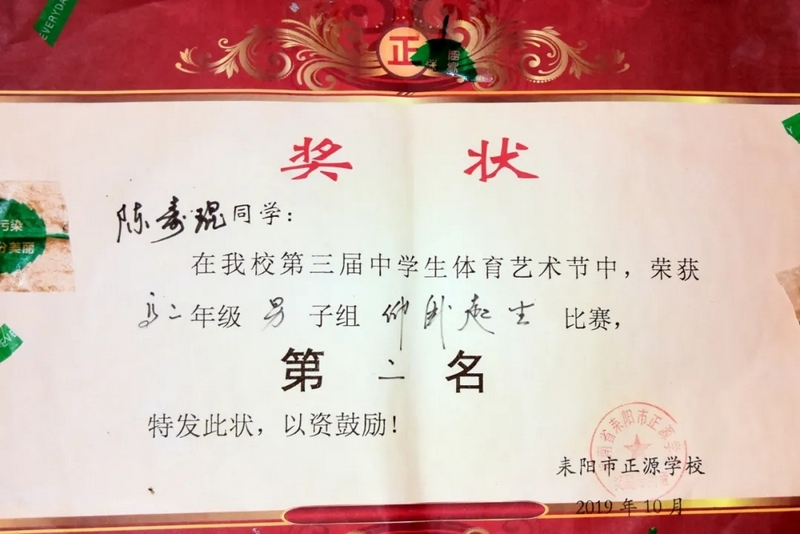 EVERYDAY
正
奖 状
陈寿琨同学：
在我校第三届中学生体育艺术节中，荣获
高二年级 男 子组 仰卧起坐 比赛，
第 二 名
特发此状，以资鼓励！
耒阳市正源学校
2019年10月
污染
分美丽
南省耒阳市正源学